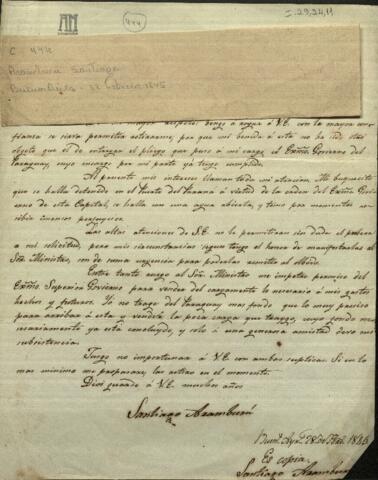 AN
444
I-29,24,11
C 444
Aramburú Santiago
Buenos Aires - 28 febrero 1846
vengo a rogar á V.E. con la mayor con-
fianza se sirva permitir retirarme, por que mi benida á esta no ha sido otro
objeto que el de entregar el pliego que puso á mi cargo el Exmo. Govierno del
Paraguay, cuyo encargo por mi parte ya tengo cumplido.
Al presente mis intereses llaman toda mi atencion. Mi buquesito
que se halla detenido en el Puerto del Parana á virtud de la orden del Exmo. Govi-
erno de esta Capital, se halla con una agua abierta, y temo por momentos re-
cibir inmensos perjuycios.
Las altas atenciones de S.E. no le permitiran sin duda el proveer
a mi solicitud, pero mis circunstancias que tengo el honor de manifestarlas al
Sor. Ministro, son de suma urgencia para poderlas omitir al olvido.
Entre tanto ruego al Sor. Ministro me impetre permiso del
Exmo. Superior Govierno para vender del cargamento lo necesario á mis gastos
hechos y futuros. Yó no trage del Paraguay mas fondo que lo muy preciso
para arribar á esta y vender la poca carga que traygo, cuyo fondo ne-
cesariamente ya está concluydo, y solo á una generosa amistad devo mi
subsistencia.
Tengo no importunar á V.E. con ambas suplicas. Si en lo
mas minimo me preparare, las retiro en el momento.
Dios guarde á V.E. muchos años
Santiago Aramburú
Buenos Ayres 28 de Feb. 1846
Es copia
Santiago Aramburú